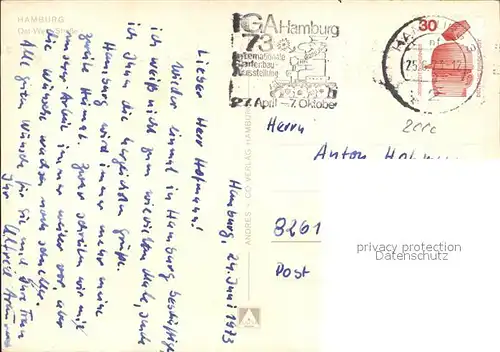 HAMBURG
Ost-West-Straße
ANDRES + CO VERLAG HAMBURG
Hamburg, 24. Juni 1973
Lieber Herr Hofmann!
Wieder einmal in Hamburg beschäftigt,
ich weiß nicht zum wievielten Male, sende
ich Ihnen die herzlichsten Grüße.
Hamburg wird immer mehr meine
zweite Heimat. Zwar schreiten wir mit
unserer Arbeit immer weiter vor aber
die Wünsche wachsen noch schneller.
Alle guten Wünsche für Sie und Ihre Frau
Ihr Alfred
IGA Hamburg
73
Internationale
Gartenbau-
Ausstellung
27. April - 7. Oktober
HAMBURG
30
2000
Herrn
Anton
8261
Post
privacy protection
Datenschutz